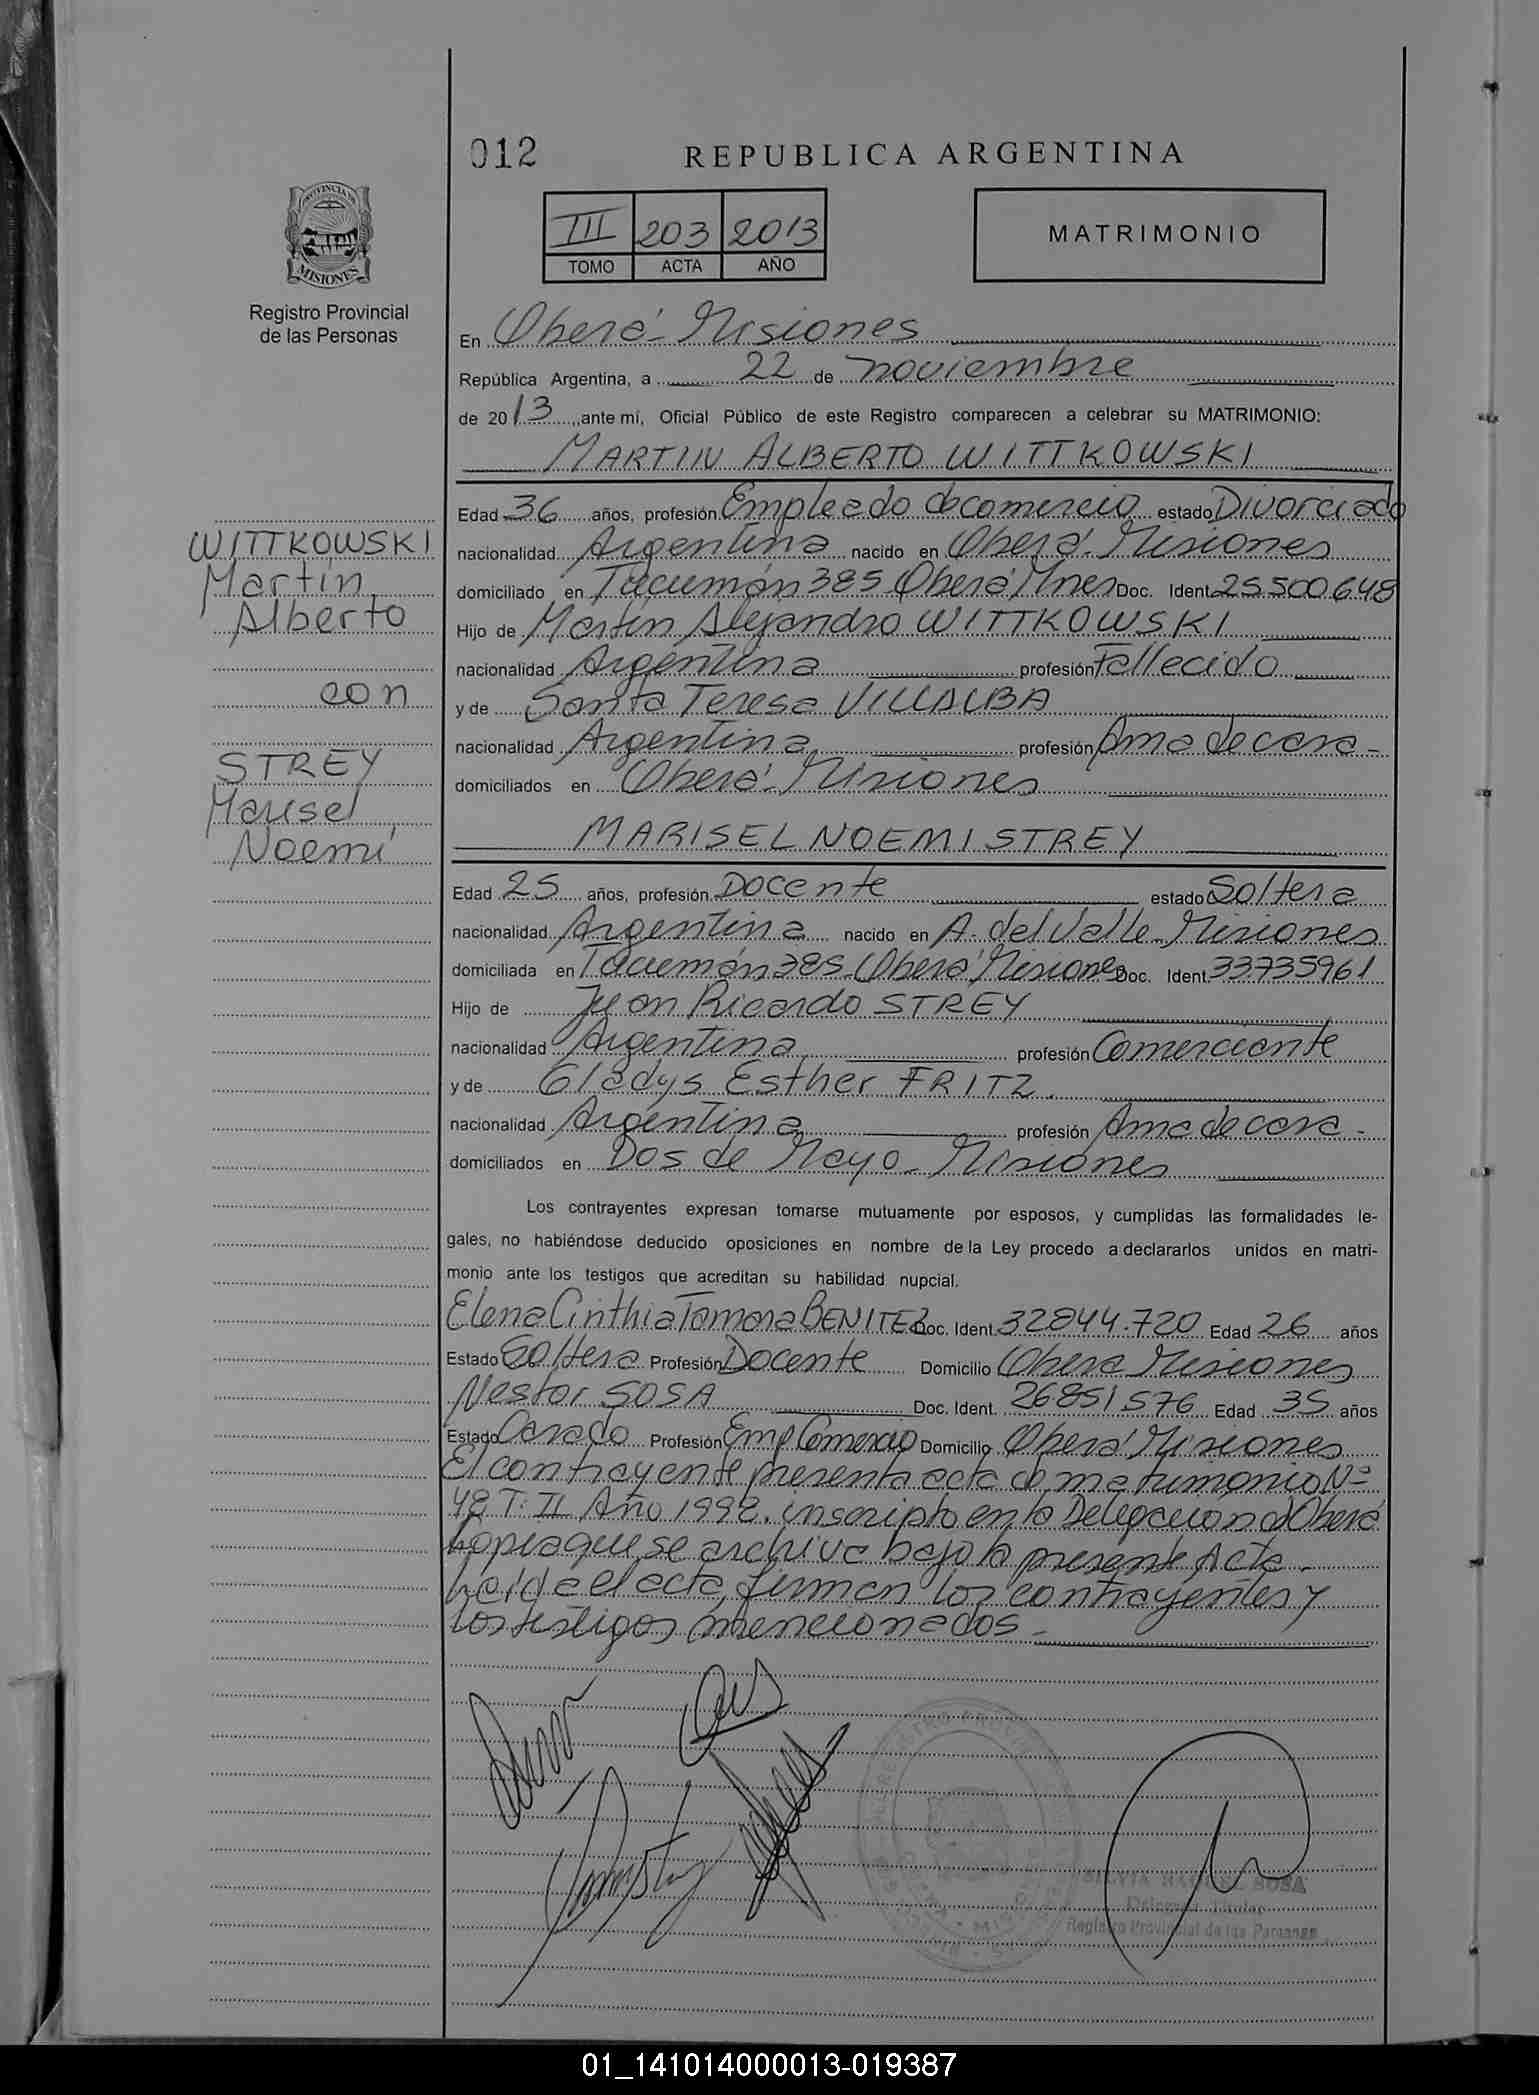 012
REPUBLICA ARGENTINA
PROVINCIA DE
MISIONES
Registro Provincial
de las Personas
III 203 2013
TOMO ACTA AÑO
MATRIMONIO
En Oberá - Misiones
República Argentina, a 22 de noviembre
de 2013, ante mí, Oficial Público de este Registro comparecen a celebrar su MATRIMONIO:
MARTIN ALBERTO WITTKOWSKI
Edad 36 años, profesión Empleado de comercio estado Divorciado
nacionalidad Argentina nacido en Oberá - Misiones
domiciliado en Tucumán 385 Oberá Mnes Doc. Ident. 25.500.648
Hijo de Martín Alejandro WITTKOWSKI
nacionalidad Argentina profesión Fallecido
y de Santa Teresa VILLALBA
nacionalidad Argentina profesión Ama de casa -
domiciliados en Oberá - Misiones
WITTKOWSKI
Martín
Alberto
con
STREY
Marisel
Noemí
MARISEL NOEMI STREY
Edad 25 años, profesión Docente estado Soltera
nacionalidad Argentina nacido en A. del Valle - Misiones
domiciliada en Tucumán 385 - Oberá Misiones Doc. Ident. 33.735.961
Hijo de Juan Ricardo STREY
nacionalidad Argentina profesión Comerciante
y de Gladys Esther FRITZ.
nacionalidad Argentina profesión Ama de casa -
domiciliados en Dos de Mayo - Misiones
Los contrayentes expresan tomarse mutuamente por esposos, y cumplidas las formalidades le-
gales, no habiéndose deducido oposiciones en nombre de la Ley procedo a declararlos unidos en matri-
monio ante los testigos que acreditan su habilidad nupcial.
Elena Cinthia Tamara BENITEZ Doc. Ident. 32844.720 Edad 26 años
Estado Soltera Profesión Docente Domicilio Oberá Misiones
Nestor SOSA Doc. Ident. 26.851.576 Edad 35 años
Estado Casado Profesión Emp Comercio Domicilio Oberá Misiones
El contrayente presenta acta de matrimonio Nº
48 T: II Año 1998. inscripto en la Delegación de Oberá
copia que se archiva bajo la presente Acta.
Leída el acta, firman los contrayentes y
los testigos mencionados -
SILVIA RAQUEL SOSA
Delegada Titular
Registro Provincial de las Personas
01_141014000013-019387